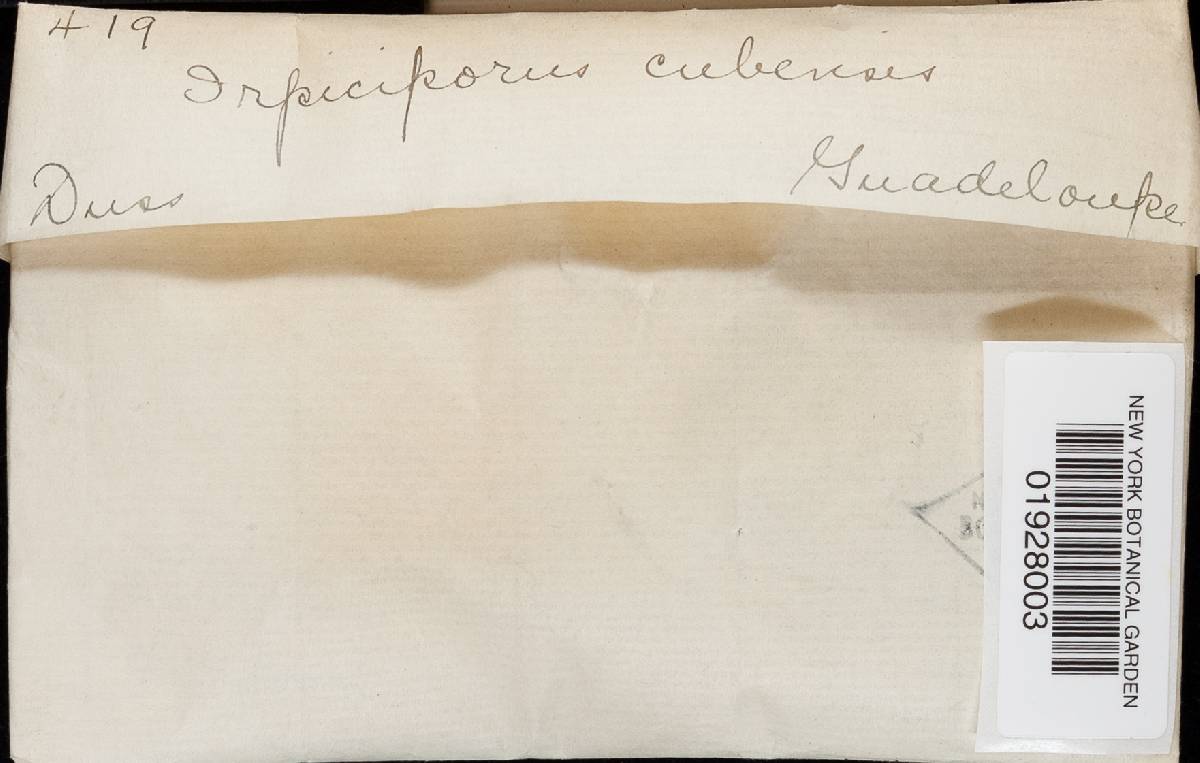 419
Irpiciporus cubensis
Duss
Guadeloupe
NEW YORK BOTANICAL GARDEN
01928003